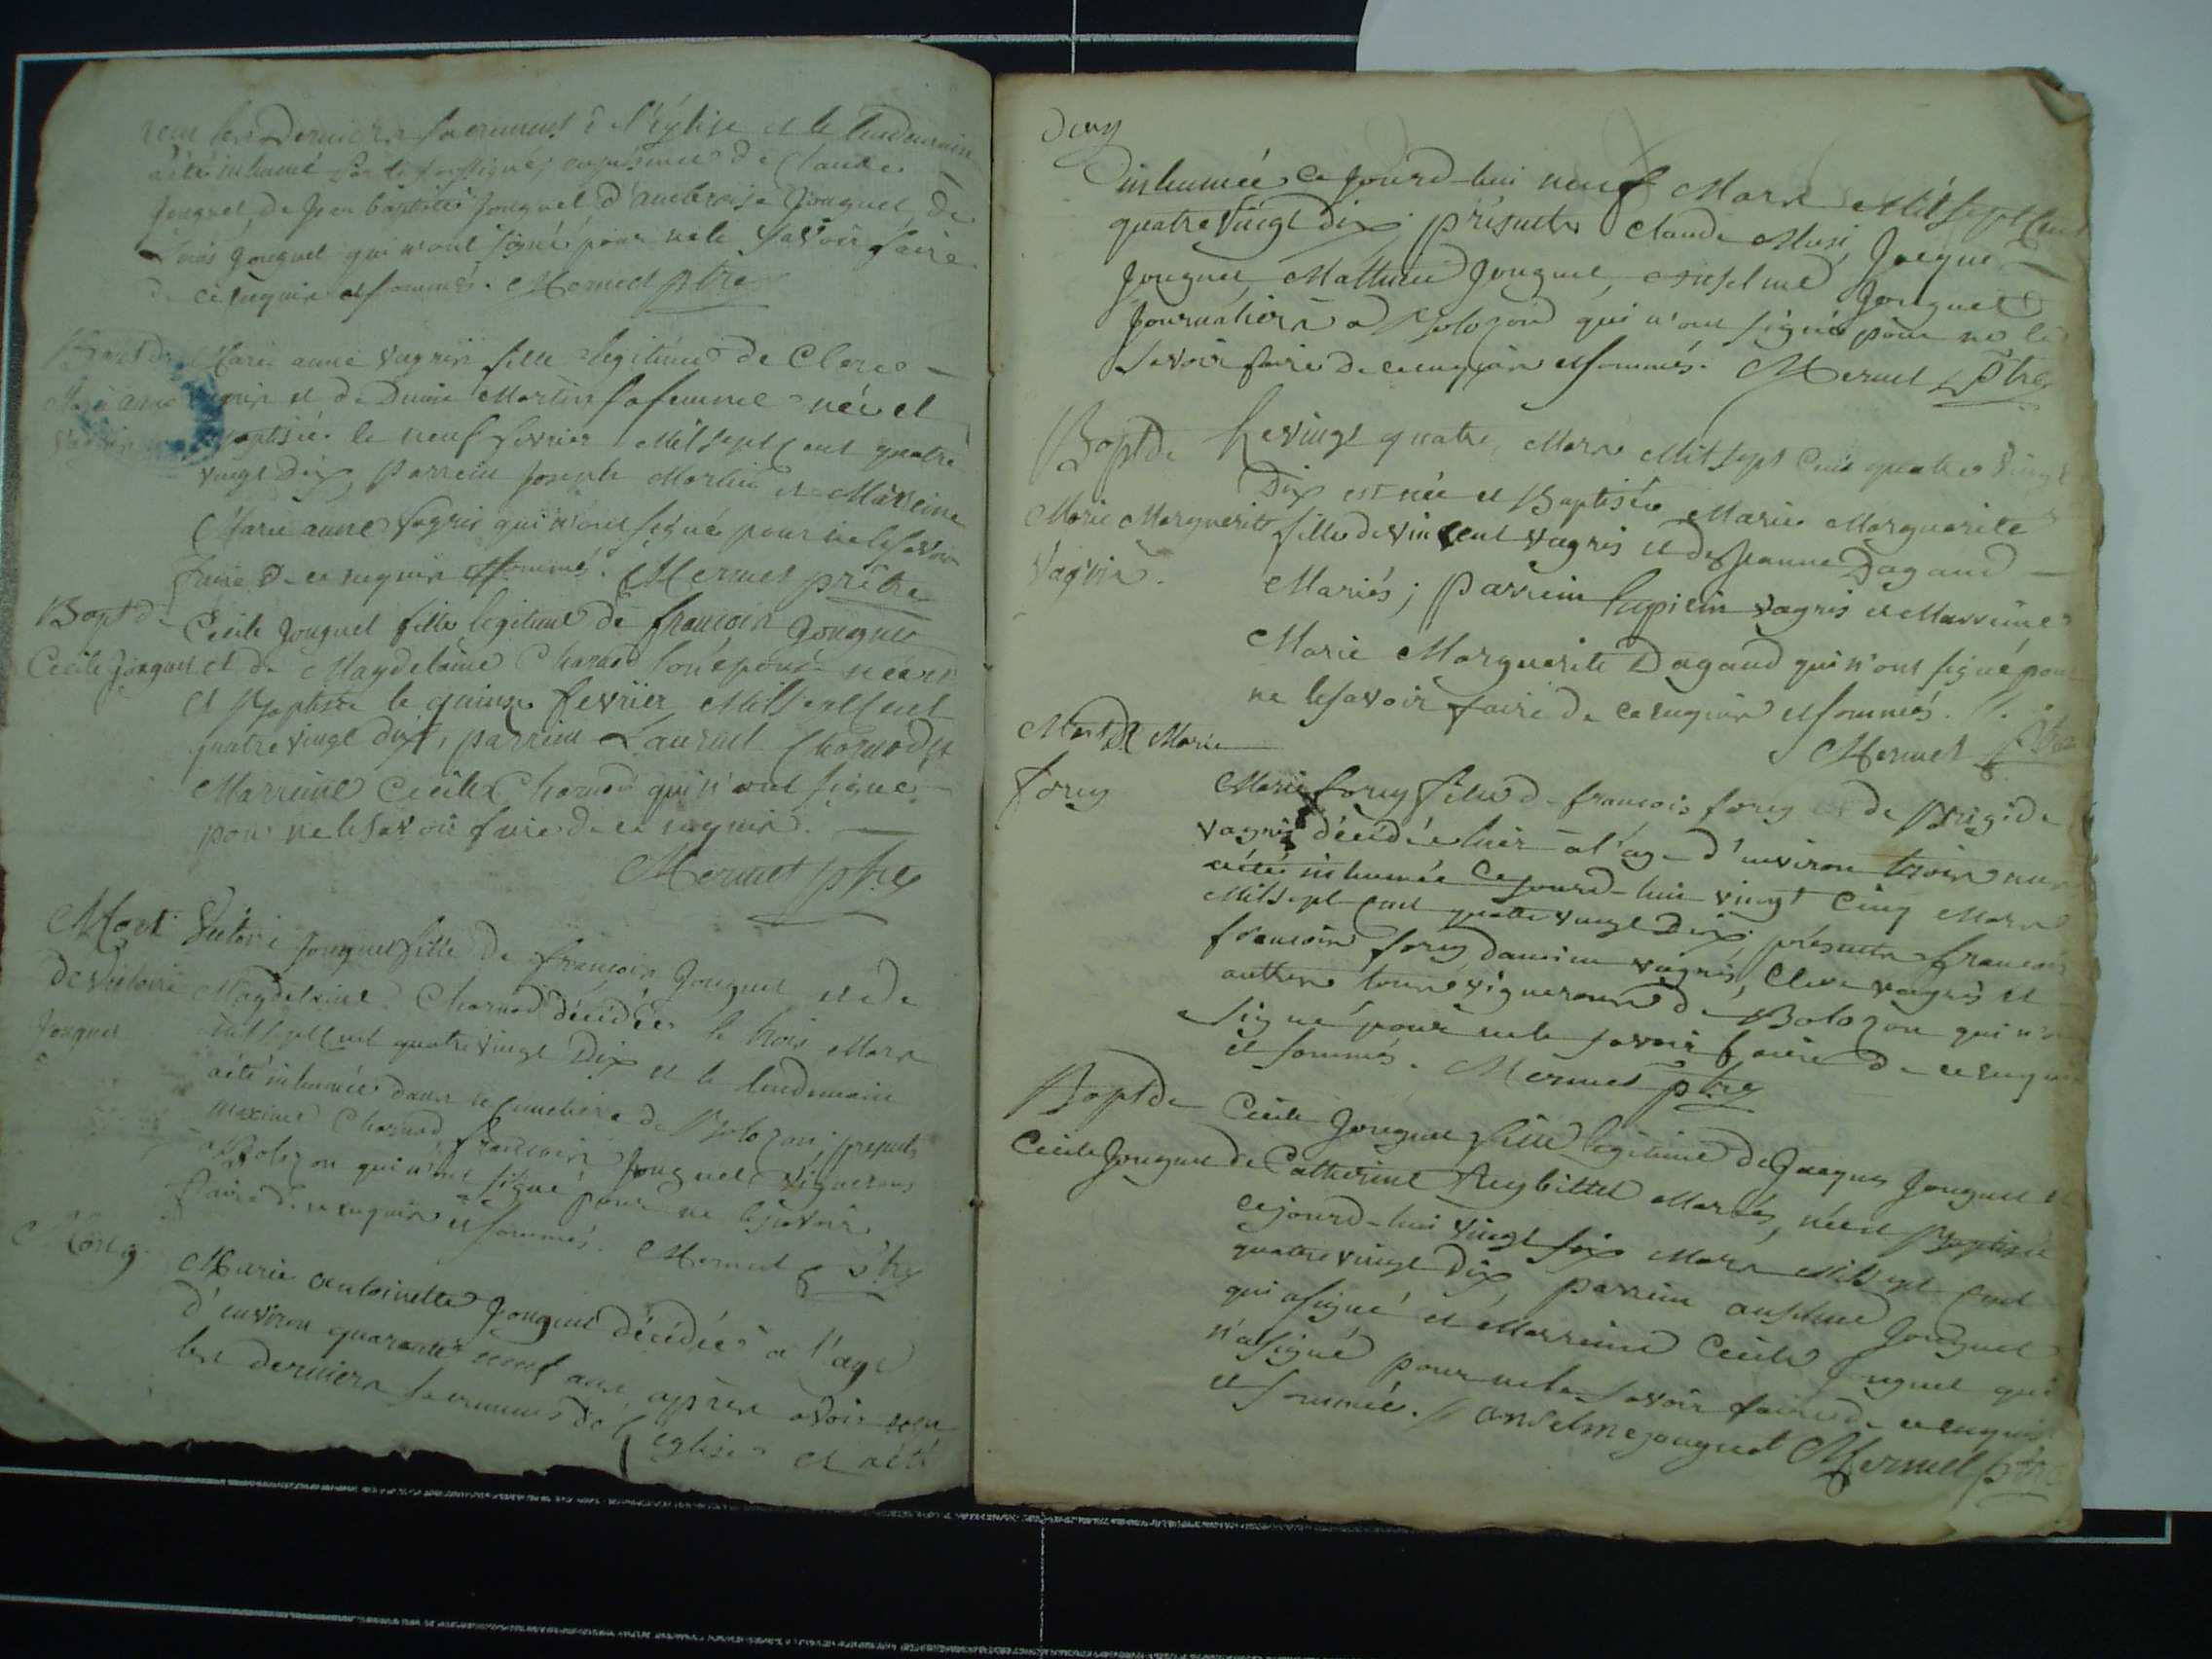 reçu les Derniers sacremens de l'église et le lendemain
a été inhumé par le soussigné, en présence de Claude
Jouguet, de Jean baptiste Jouguet d'ambroise Jouguet, de
Louis Jouguet qui n'ont signé pour ne le savoir faire
de ce enquis et sommés. Mermet ptre
Bapt de
Marie anne
Vagris
Marie anne Vagris fille legitime de Clere
Vagris et de Denise Martin sa femme née et
baptisée le neuf fevrier Mil sept cent quatre
vingt Dix, parrein joseph Martin et Marreine
Marie anne Vagris qui n'ont signé pour ne le savoir
faire de ce enquis et sommés. Mermet prêtre
Bapt de
Cecile Jouguet
Cecile Jouguet fille legitime de francois Jouguet
et de Magdelaine Charnod son épouse née
et Baptisée le quinze fevrier Mil sept cent
quatre vingt dix, parrein Laurent Charnod et
Marreine Cecile Charnod qui n'ont signé
pour ne le savoir faire de ce enquis.
Mermet ptre
Mort
de Victoire
Jouguet
Victoire Jouguet fille de francois Jouguet et de
Magdelaine Charnod décédée le trois Mars
mil sept cent quatre vingt Dix et le lendemain
a été inhumée dans le cimetiere de Bolozon; présents
maxime Charnod, francois Jouguet vignerons
a Bolozon qui n'ont signé pour ne le savoir
faire de ce enquis et sommés. Mermet ptre
Mort
Marie antoinette Jouguet décédée a l'age
d'environ quarante neuf ans, après avoir reçu
les derniers sacremens de l'eglise et a été
Deux
inhumée ce jourd-hui neuf Mars Mil sept cent
quatre vingt Dix; présents Claude Musi, Jacque
Jouguet, Mathieu Jouguet, anselme Jouguet
Journaliers a Bolozon qui n'ont signé pour ne le
savoir faire de ce enquis et sommés. Mermet Ptre
Bapt de
Marie Marguerite
Vagris.
Le vingt quatre, Mars Mil sept cent quatre vingt
Dix est née et Baptisée Marie Marguerite
fille de vincent vagris et de Jeanne Dagaud
Mariés; parrein lupicin vagris et Marreine
Marie Marguerite Dagaud qui n'ont signé pour
ne le savoir faire de ce enquis et sommés.
Mermet Ptre
Mort de Marie
forey
Marie forey fille de francois forey et de Brigide
vagris décédée hier a l'age d'environ trois ans
a été inhumée ce jourd-hui vingt Cinq Mars
Mil sept cent quatre vingt Dix; présents francois
francois forey damien vagris, Clere vagris et
autres tous vignerons de Bolozon qui n'ont
signé pour ne le savoir faire de ce enquis
et sommés. Mermet ptre
Bapt de
Cecile Jouguet
Cecile Jouguet fille legitime de Jacques Jouguet et
de Catherine Reybillet Mariés, née et Baptisée
ce jourd-hui vingt six Mars Mil sept cent
quatre vingt Dix, parrein anselme Jouguet
qui a signé et Marreine Cecile Jouguet qui
n'a signé pour ne le savoir faire de ce enquis
et sommée. anselme jouguet Mermet ptre